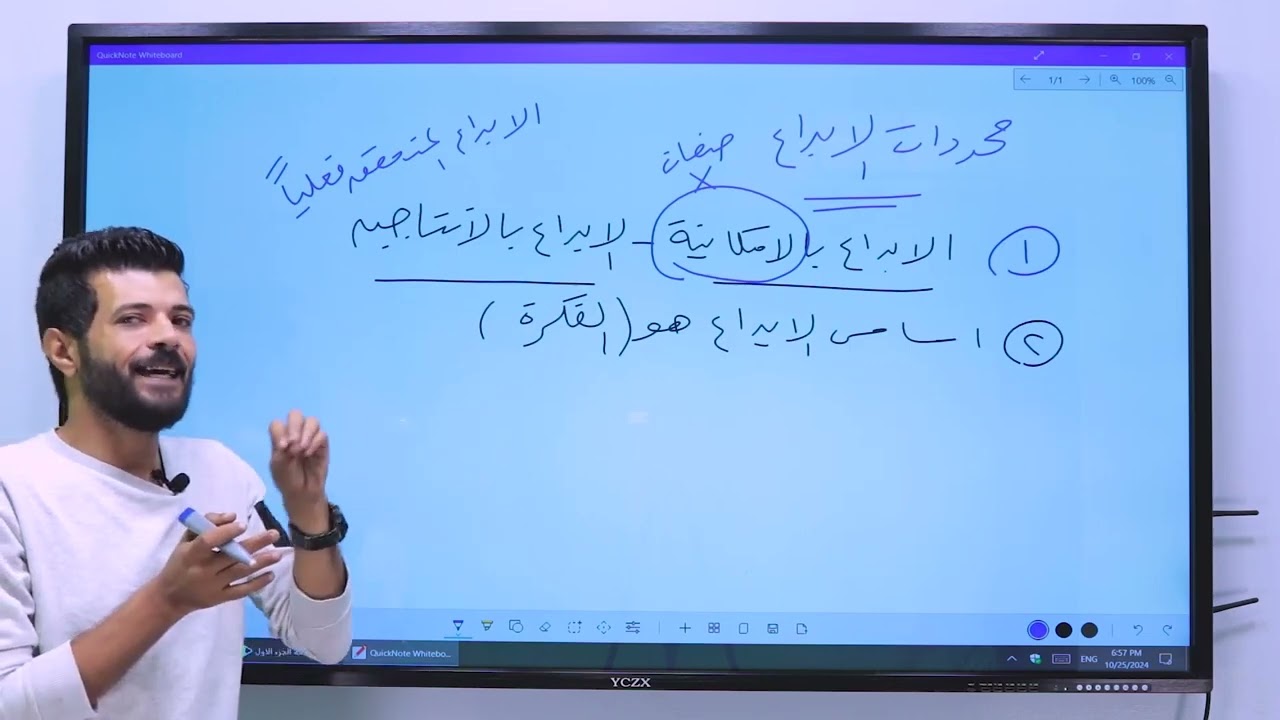 QuickNote Whiteboard
1/1 100%
محددات الابداع
صفات
X
الابداع المتحققه فعلياً
١ الابداع بالامكانية - الابداع بالانتاجيه
٢ اساس الابداع هو (الفكرة)
الجزء الاول
QuickNote Whitebo...
ENG
6:57 PM
10/25/2024
YCZX